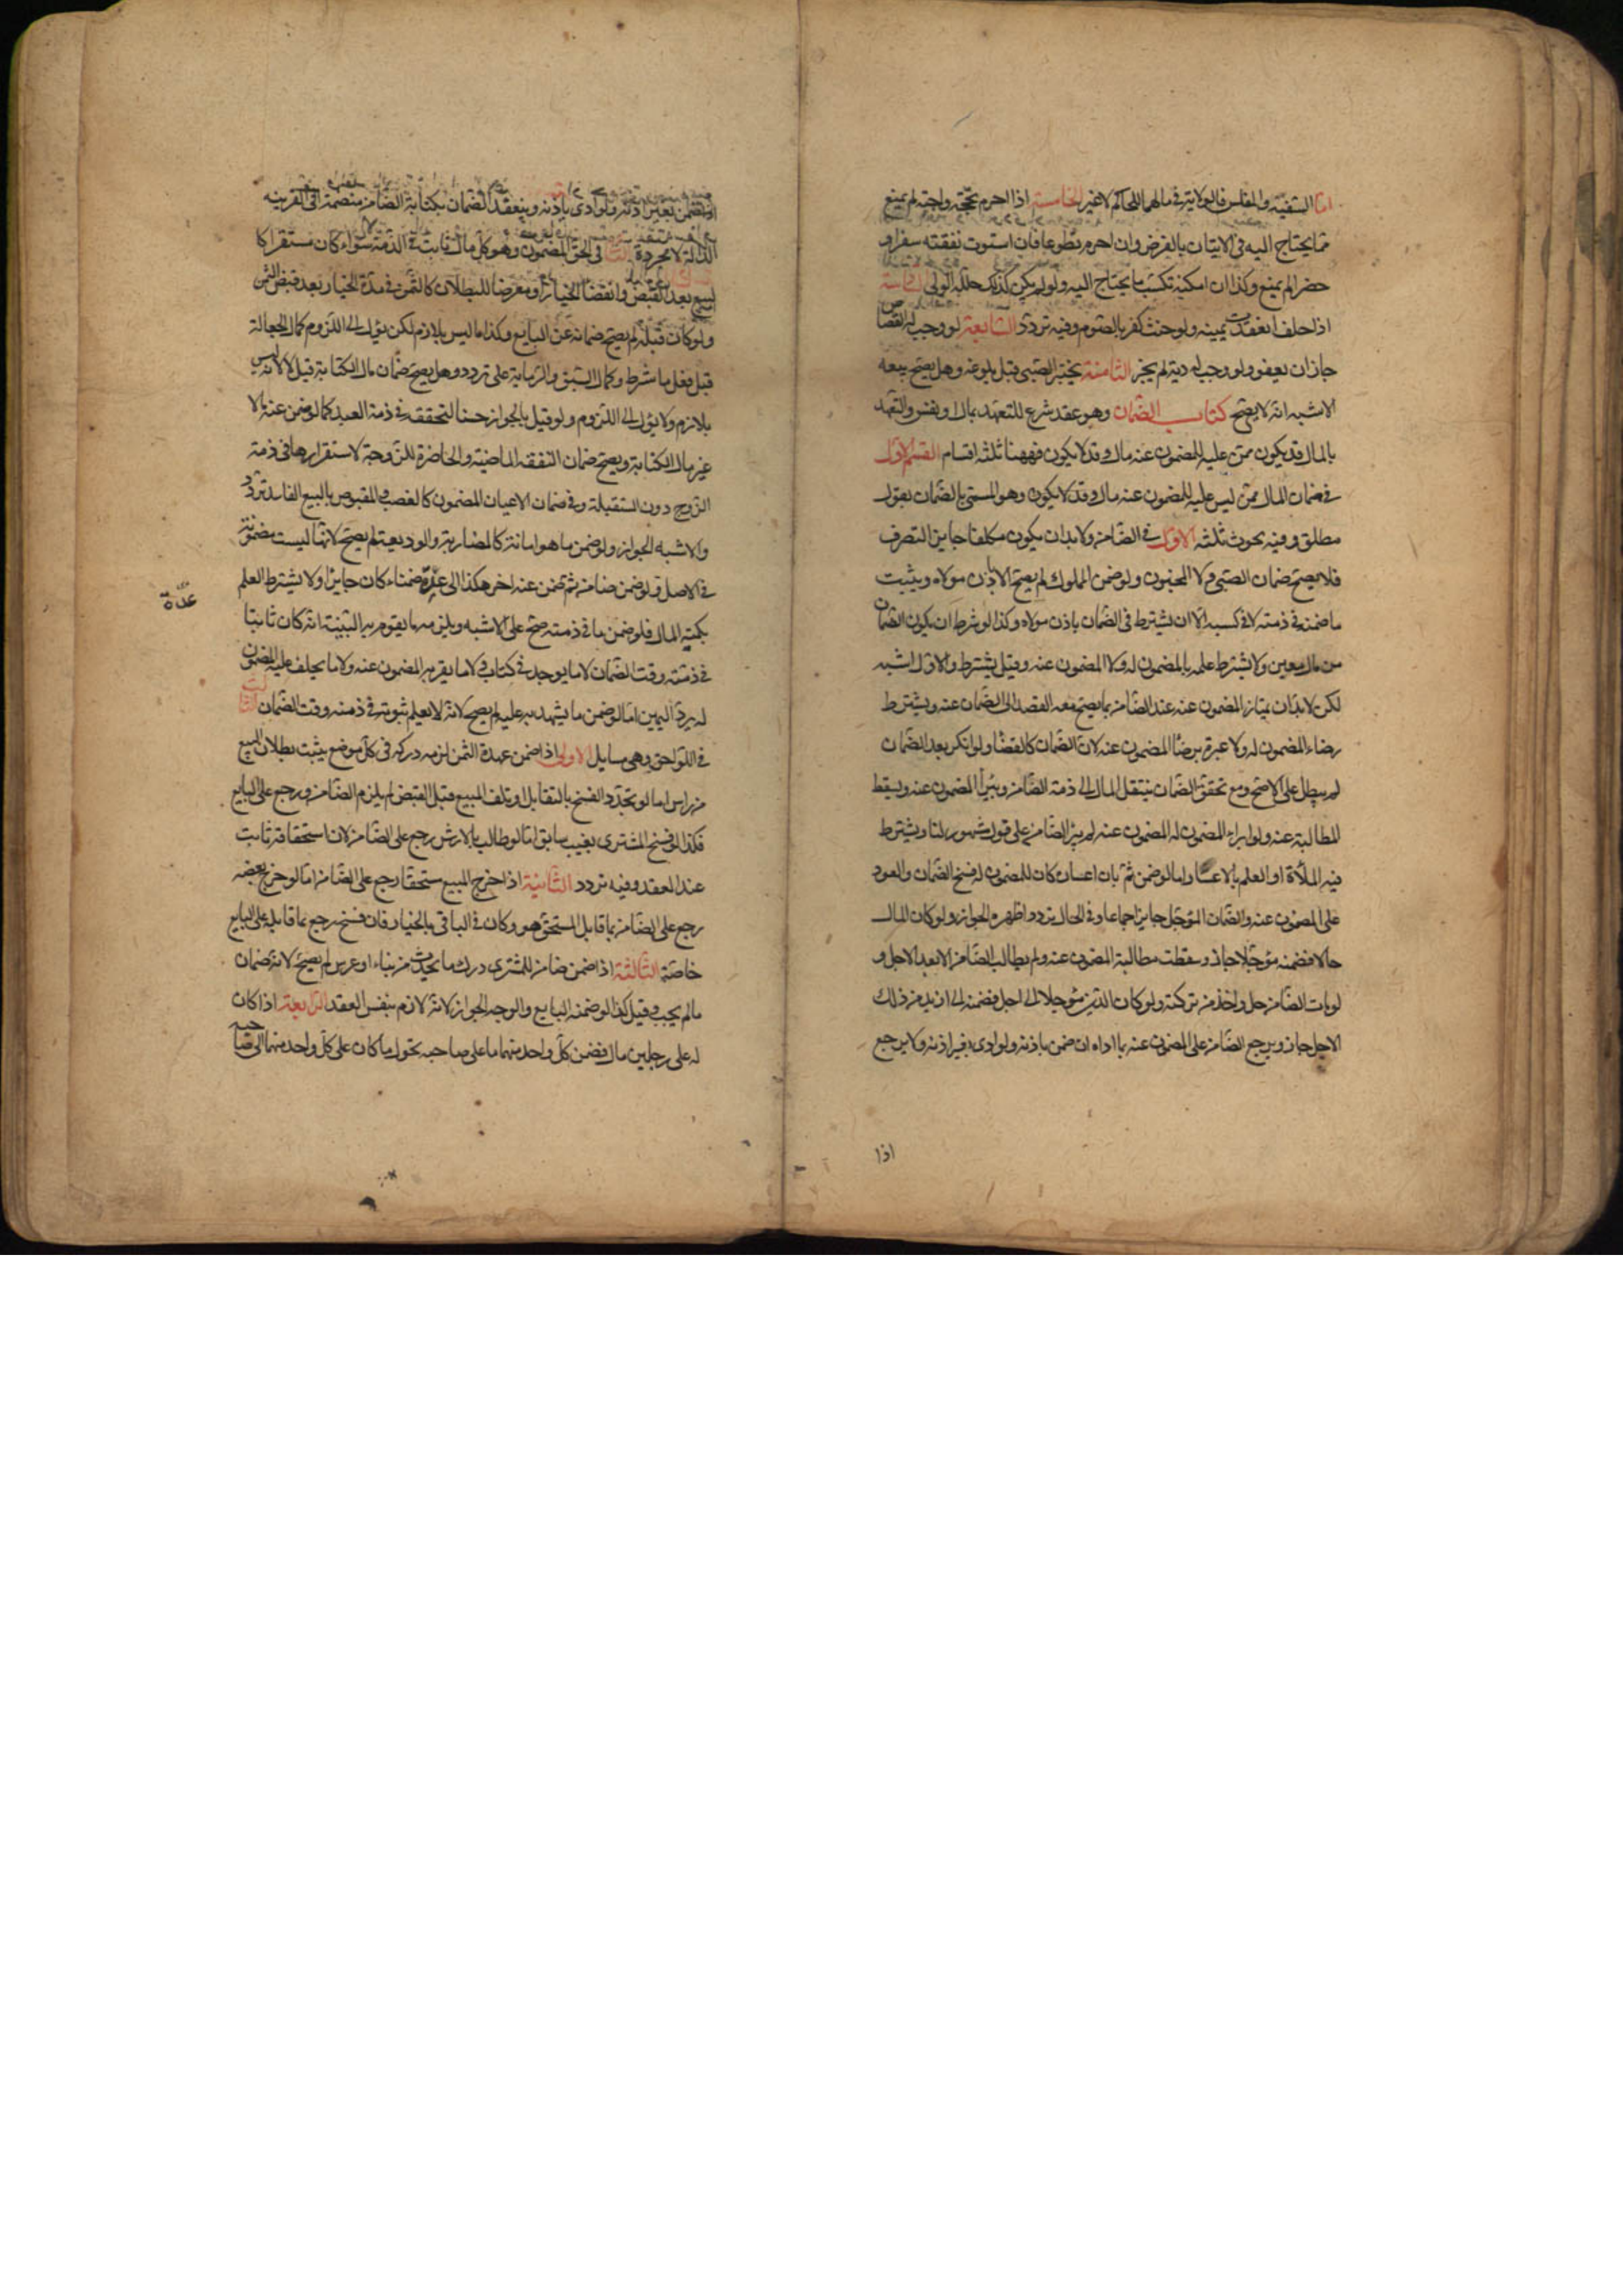 اما السفيه والمفلس فالولاية في مالهما للحاكم لا غير الخامسة اذا احرم بحجة واجبة لم يمنع
مما يحتاج اليه في الاتيان بالفرض وان احرم تطوعا فان استوت نفقته سفرا و
حضرا لم يمنع وكذا ان امكنه تكسب ما يحتاج اليه ولو لم يكن كذلك حلله الولي
اذا حلف انعقدت يمينه ولو حنث كفر بالصوم وفيه تردد السابعة لو وجب له القصاص
جاز ان يعفو ولو وجب له دية لم يجز الثامنة يختبر الصبي قبل بلوغه وهل يصح بيعه
الاشبه انه لا يصح كتاب الضمان وهو عقد شرع للتعهد بمال او نفس والتعهد
بالمال قد يكون ممن عليه للمضمون عنه مال وقد لا يكون فههنا ثلثه اقسام القسم الاول
في ضمان المال ممن ليس عليه للمضمون عنه مال وقد لا يكون وهو المسمى بالضمان بقول
مطلق وفيه بحوث ثلثه الاول في الضامن ولا بد ان يكون مكلفا جايز التصرف
فلا يصح ضمان الصبي ولا المجنون ولو ضمن المملوك لم يصح الا باذن مولاه ويثبت
ما ضمنه في ذمته لا في كسبه الا ان يشترط في الضمان باذن مولاه وكذا لو شرط ان يكون الضمان
من مال معين ولا يشترط علمه بالمضمون له ولا المضمون عنه وقيل يشترط والاول اشبه
لكن لا بد ان يمتاز المضمون عنه عند الضامن بما يصح معه القصد الى الضمان عنه ويشترط
رضاء المضمون له ولا عبرة برضا المضمون عنه لان الضمان كالقضا ولو انكر بعد الضمان
لم يبطل على الاصح ومع تحقق الضمان ينتقل المال الى ذمة الضامن ويبرأ المضمون عنه ويسقط
المطالبة عنه ولو ابراء المضمون له المضمون عنه لم يبرا الضامن على قول مشهور لنا ويشترط
فيه الملأة او العلم بالاعسار اما لو ضمن ثم بان اعساره كان للمضمون له فسخ الضمان والعود
على المضمون عنه والضمان المؤجل جايز اجماعا وفي الحال تردد اظهره الجواز ولو كان المال
حالا فضمنه مؤجلا جاز وسقطت مطالبة المضمون عنه ولم يطالب الضامن الا بعد الاجل و
لو مات الضامن حل واخذ من تركته ولو كان الدين مؤجلا الى اجل فضمنه الى ازيد من ذلك
الاجل جاز ويرجع الضامن على المضمون عنه بما اداه ان ضمن باذنه ولو ادى بغير اذنه ولا يرجع
اذا
اذا ضمن بغير اذنه ولو ادى باذنه وينعقد الضمان بكتابة الضامن منضمة الى القرينه
الدالة لا مجردة الثاني في الحق المضمون وهو كل مال ثابت في الذمة سواء كان مستقرا كا
لبيع بعد القبض وانقضا الخيار او معرضا للبطلان كالثمن في مدة الخيار بعد قبض الثمن
ولو كان قبله لم يصح ضمانه عن البايع وكذا ما ليس بلازم لكن يؤل الى اللزوم كمال الجعالة
قبل فعل ما شرط وكمال السبق والرماية على تردد وهل يصح ضمان مال الكتابة قيل لا لانه ليس
بلازم ولا يؤل الى اللزوم ولو قيل بالجواز حسنا لتحققه في ذمة العبد كما لو ضمن عنه مالا
غير مال الكتابة ويصح ضمان النفقه الماضية والحاضرة للزوجة لاستقرارها في ذمة
الزوج دون المستقبلة وفي ضمان الاعيان المضمون كالغصب والمقبوض بالبيع الفاسد تردد
والاشبه الجواز ولو ضمن ما هو امانة كالمضاربة والوديعة لم يصح لانها ليست مضمونة
في الاصل ولو ضمن ضامن ثم ضمن عنه اخر هكذا الى عدة ضمناء كان جايزا ولا يشترط العلم
عدة
بكمية المال فلو ضمن ما في ذمته صح على الاشبه ويلزمه ما يقوم به البينة انه كان ثابتا
في ذمته وقت الضمان لا ما يوجد في كتاب ولا ما يقر به المضمون عنه ولا ما يحلف عليه المضمون
له برد اليمين اما لو ضمن ما يشهد به عليه لم يصح لانه لا يعلم ثبوته في ذمته وقت الضمان الثالث
في اللواحق وهي مسايل الاولى اذا ضمن عهدة الثمن لزمه دركه في كل موضع يثبت بطلان البيع
من راس اما لو تجدد الفسخ بالتقايل او تلف المبيع قبل القبض لم يلزم الضامن ورجع على البايع
فكذا لو فسخ المشتري بعيب سابق اما لو طالب بالارش رجع على الضامن لان استحقاقه ثابت
عند العقد وفيه تردد الثانية اذا خرج المبيع مستحقا رجع على الضامن اما لو خرج بعضه
رجع على الضامن بما قابل المستحق هو وكان في الباقي بالخيار فان فسخ رجع بما قابله على البايع
خاصة الثالثة اذا ضمن ضامن للمشتري درك ما يحدث من بناء او غرس لم يصح لانه ضمان
ما لم يجب وقيل كذا لو ضمنه البايع والوجه الجواز لانه لازم بنفس العقد الرابعة اذا كان
له على رجلين مال فضمن كل واحد منهما ما على صاحبه تحول ما كان على كل واحد منهما الى صاحبه